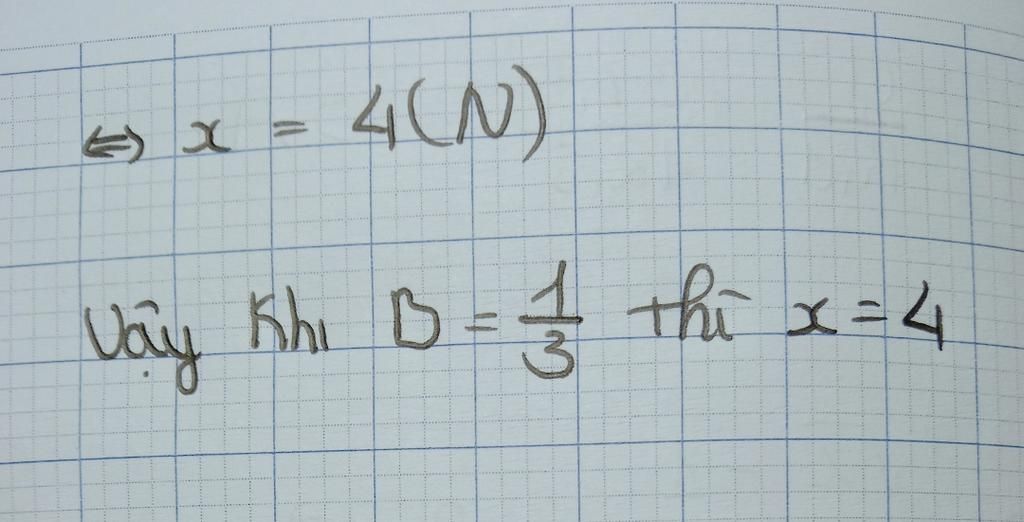 ⇔ x = 4 (N)
Vậy khi B = 1/3 thì x = 4